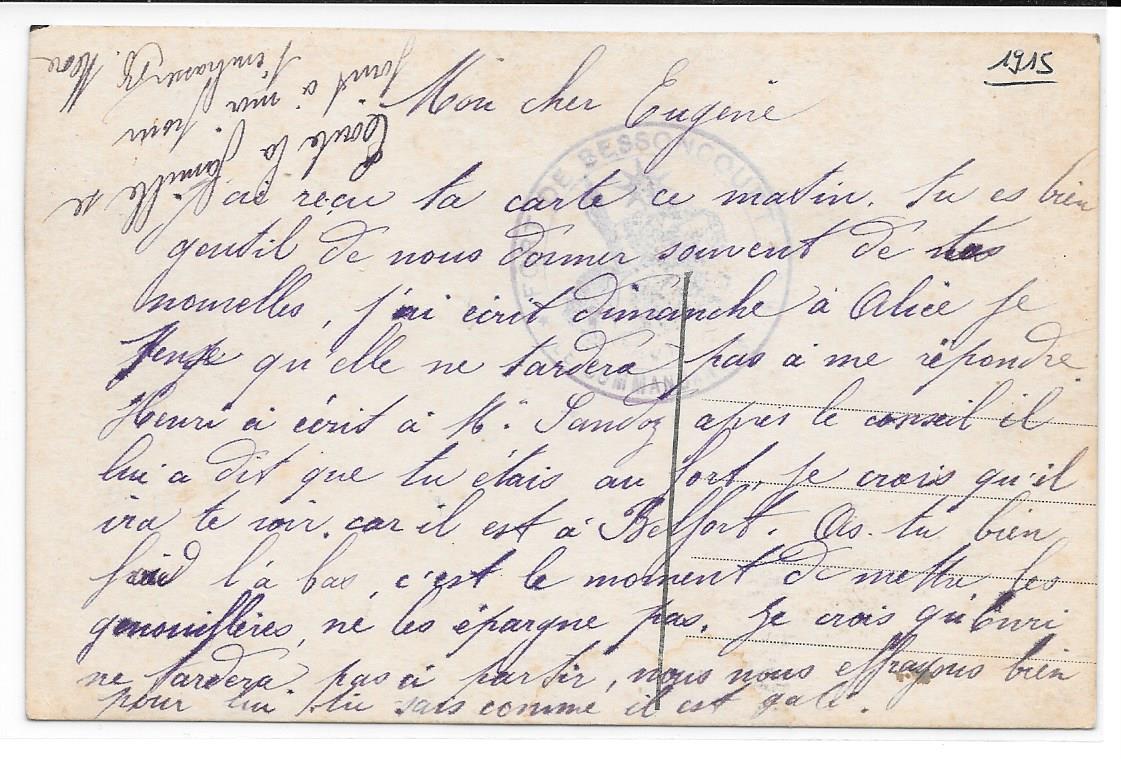 1915
Mon cher Eugène
J'ai reçu ta carte ce matin. tu es bien
gentil de nous donner souvent de tes
nouvelles, j'ai écrit dimanche à Alice je
pense qu'elle ne tardera pas à me répondre.
Henri à écrit à Mr Sandoz apres le conseil il
lui a dit que tu étais au fort, je crois qu'il
ira te voir car il est à Belfort. As-tu bien
froid l'à bas, c'est le moment de mettre les
genouillères, ne les épargne pas. Je crois qu'henri
ne tardera pas à partir, nous nous effrayons bien
pour lui tu sais comme il est gaté.
Toute la famille se
joint à moi pour
t'embrasser
FORT DE BESSONCOURT
LE COMMANDANT